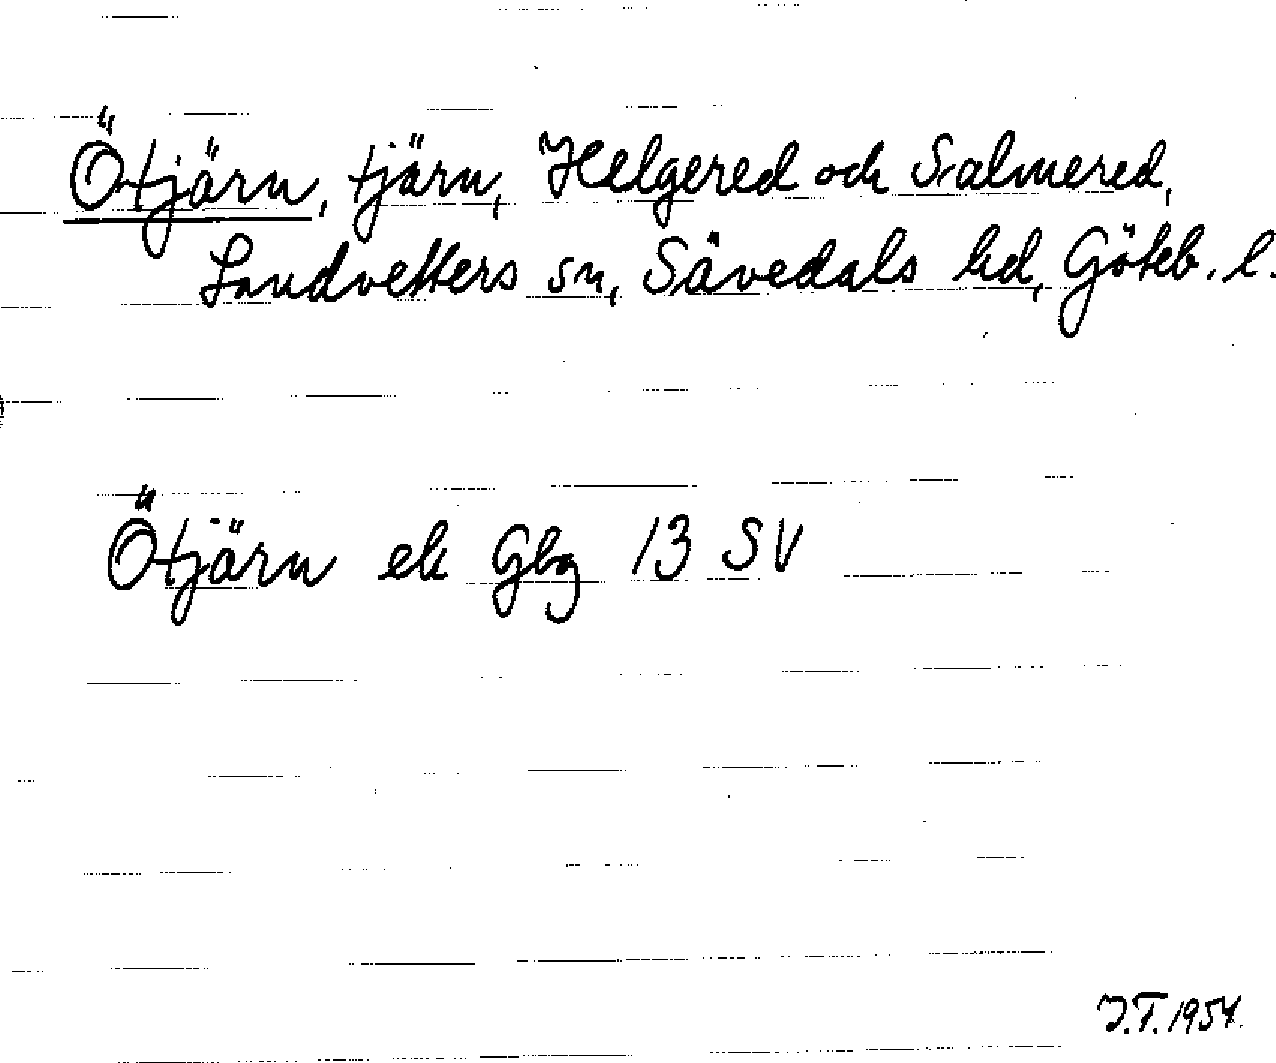 Ötjärn, tjärn, Helgered och Salmered,
Landvetters sn, Sävedals hd, Göteb. l.
Ötjärn ek Gbg 13 SV
J.T. 1954.